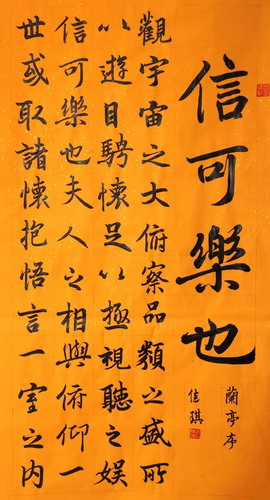 信可樂也
蘭亭本
佳琪
觀宇宙之大俯察品類之盛所
以遊目騁懷足以極視聽之娛
信可樂也夫人之相與俯仰一
世或取諸懷抱悟言一室之內